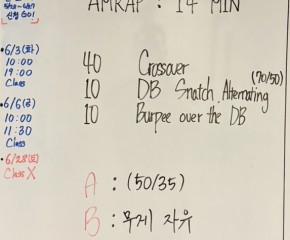 AMRAP : 14 MIN
신청 GO!
• 6/3(화)
10:00
19:00
Class
• 6/6(금)
10:00
11:30
Class
• 6/28(토)
Class X
40 Crossover
(70/50)
10 DB Snatch. Alternating
10 Burpee over the DB
A : (50/35)
B : 무게 자유